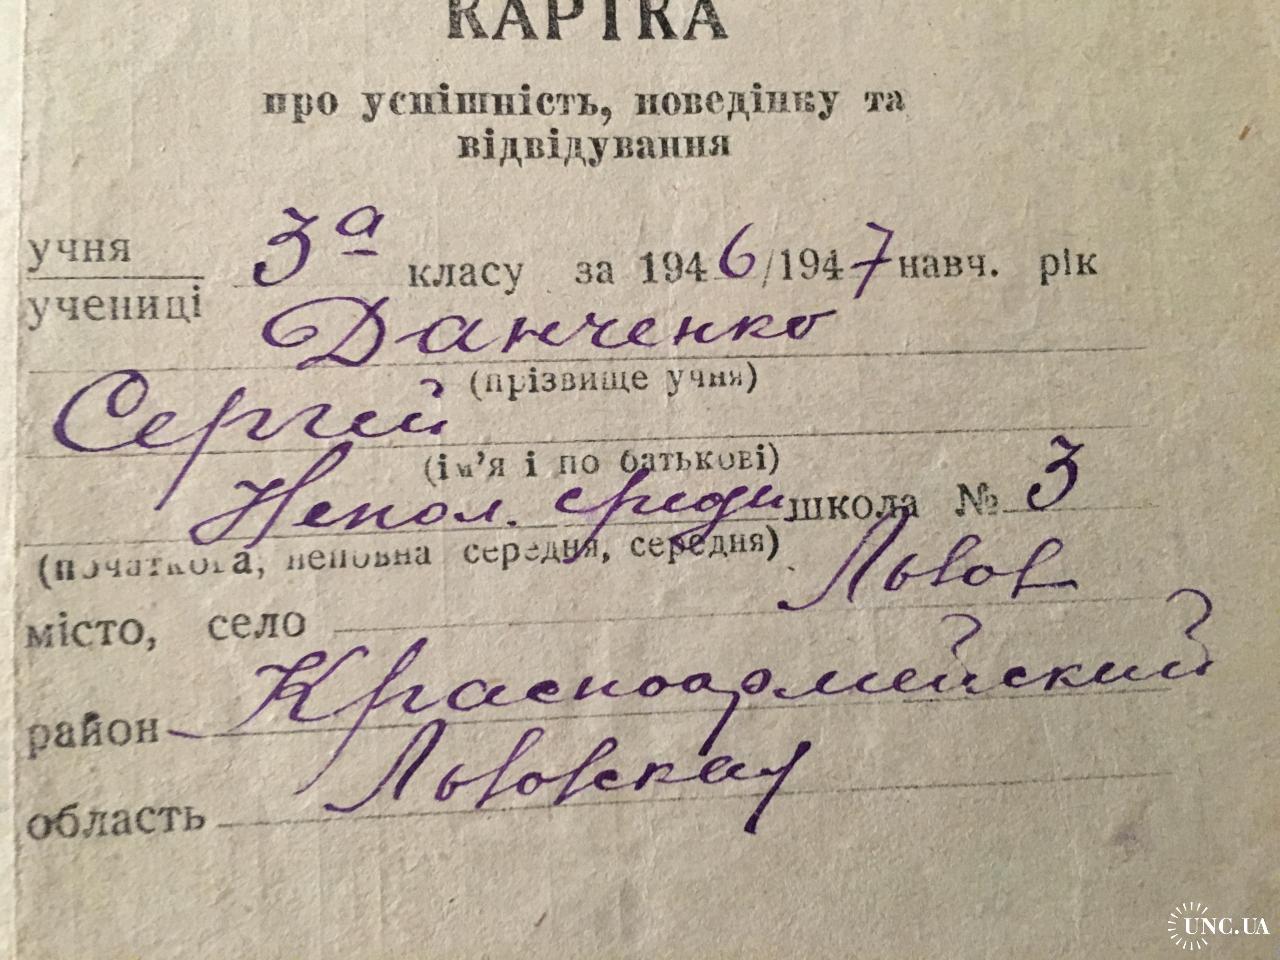 КАРТКА
про успішність, поведінку та
відвідування
учня
учениці
3а класу за 1946/1947 навч. рік
Данченко
(прізвище учня)
Сергей
(ім'я і по батькові)
Непол. средн школа № 3
(початкова, неповна середня, середня)
місто, село Львов
район Красноармейский
область Львовская
UNC.UA